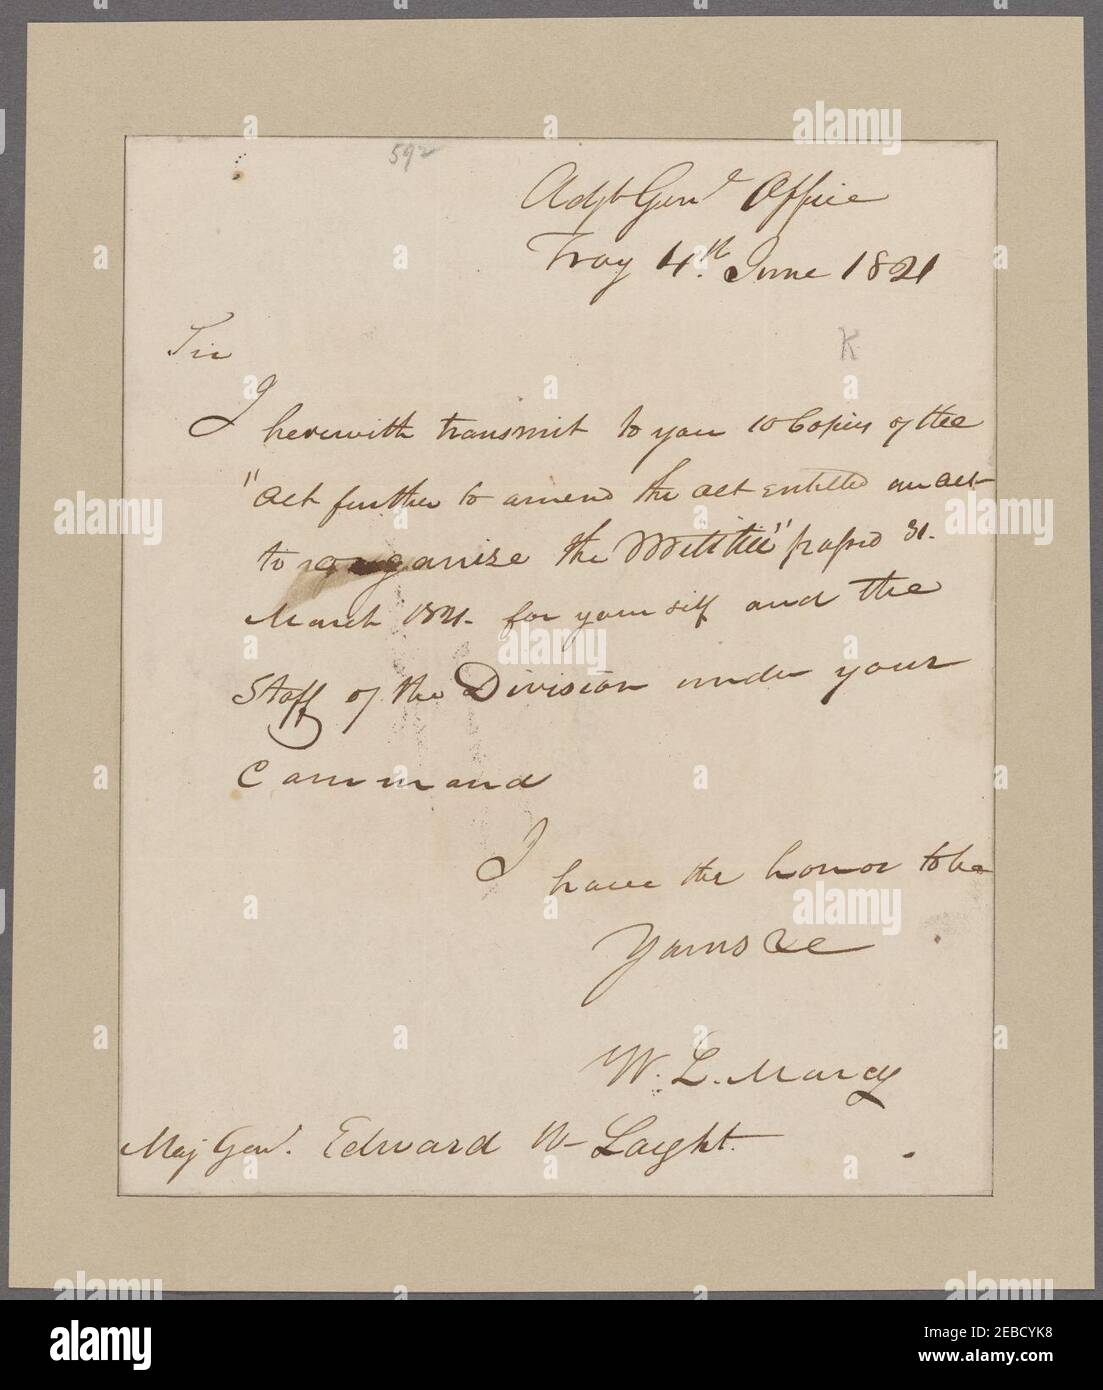 592
Adjt Genl Office
Troy 4th June 1821
K
Sir
I herewith transmit to you 10 Copies of the
"Act further to amend the act entitled an act
to organize the Militia" passed 31.
March 1821. for yourself and the
Staff of the Division under your
Command
I have the honor to be
Yours &c
W. L. Marcy
Maj Genl. Edward W Laight.
a alamy
alamy
Image ID: 2EBCYK8
www.alamy.com